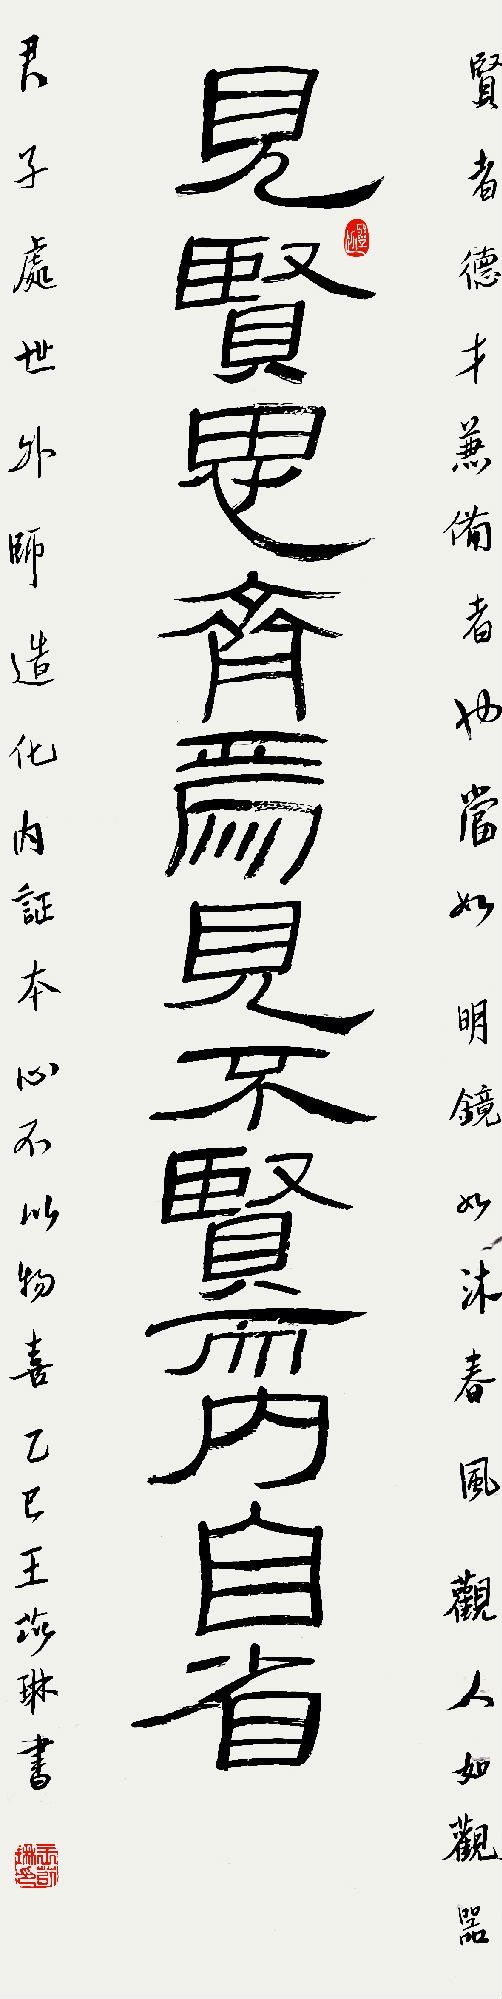 賢者德才蒹備者也當如明鏡如沐春風觀人如觀器
見賢思齊焉見不賢而內自省
君子處世外師造化內証本心不以物喜乙巳王琳書